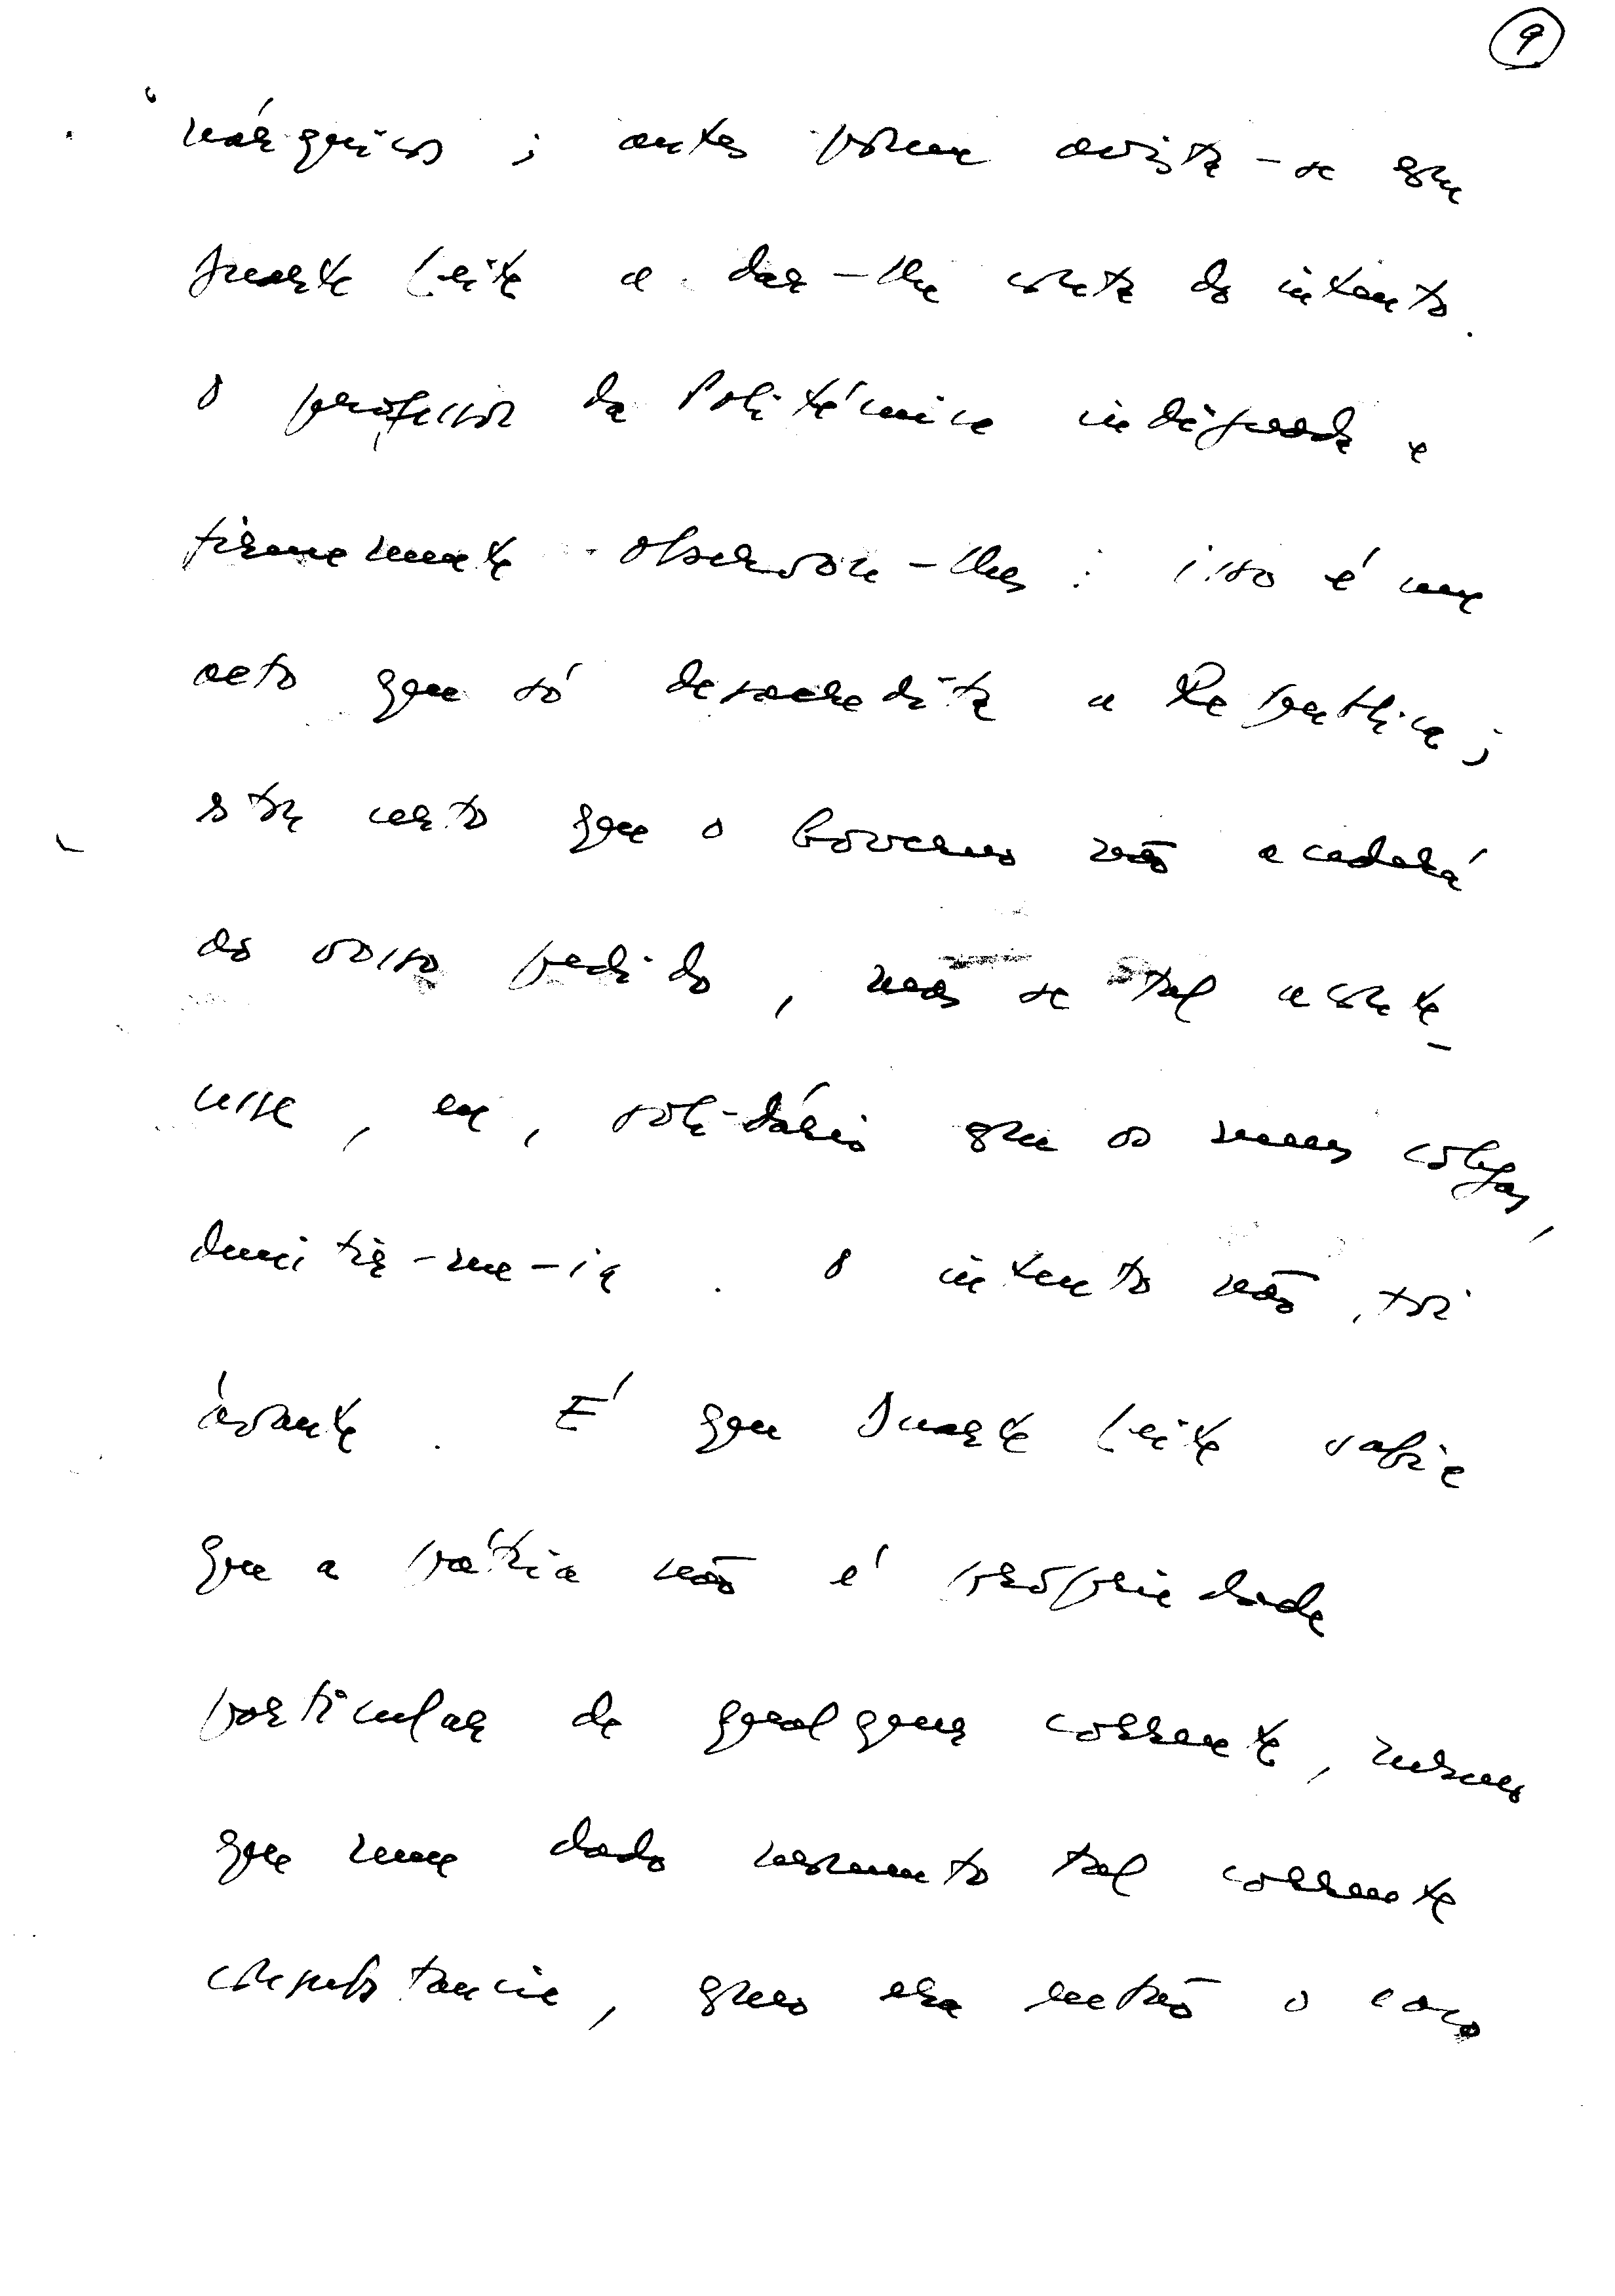 9
nárquicos ; antes porém avista-se com
Duarte Leite a dar-lhe conta do intento.
O professor da Politécnica indignado e
firmemente observou-lhes : isso é um
acto que só desacredita a República ;
stou certo que o Governo não acederá
ao vosso pedido , mas se tal aconte-
cesse , eu , solidário com os meus colegas ,
demitir-me-ia . O intento não foi
àvante . É que Duarte Leite sabia
que a pátria não é propriedade
particular de qualquer corrente , mesmo
que num dado momento tal corrente
consubstancie , como era então o caso